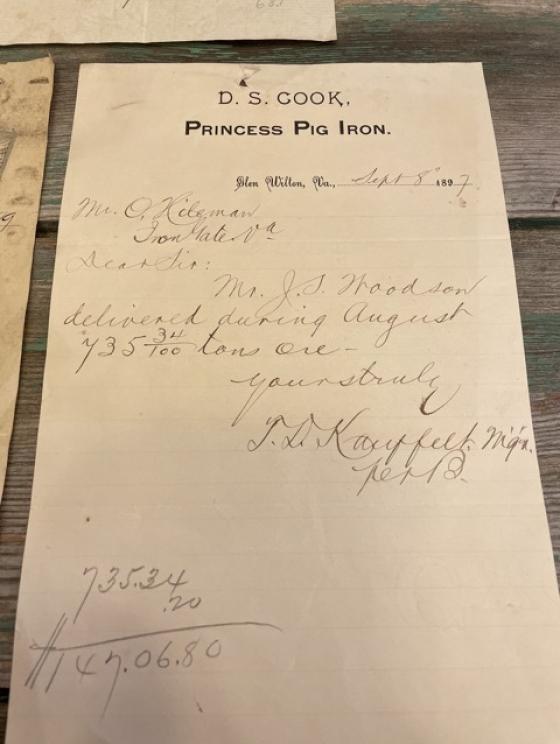 D. S. COOK,
PRINCESS PIG IRON.
Glen Wilton, Va., Sept 8" 1897
Mr. O. Hileman
Iron Gate. Va
Dear Sir:
Mr. J. S. Woodson
delivered during August
735 34/100 tons ore -
yours truly
T. D. Kauffelt. Mg'r.
per B.
735.34
.20
$147.06.80